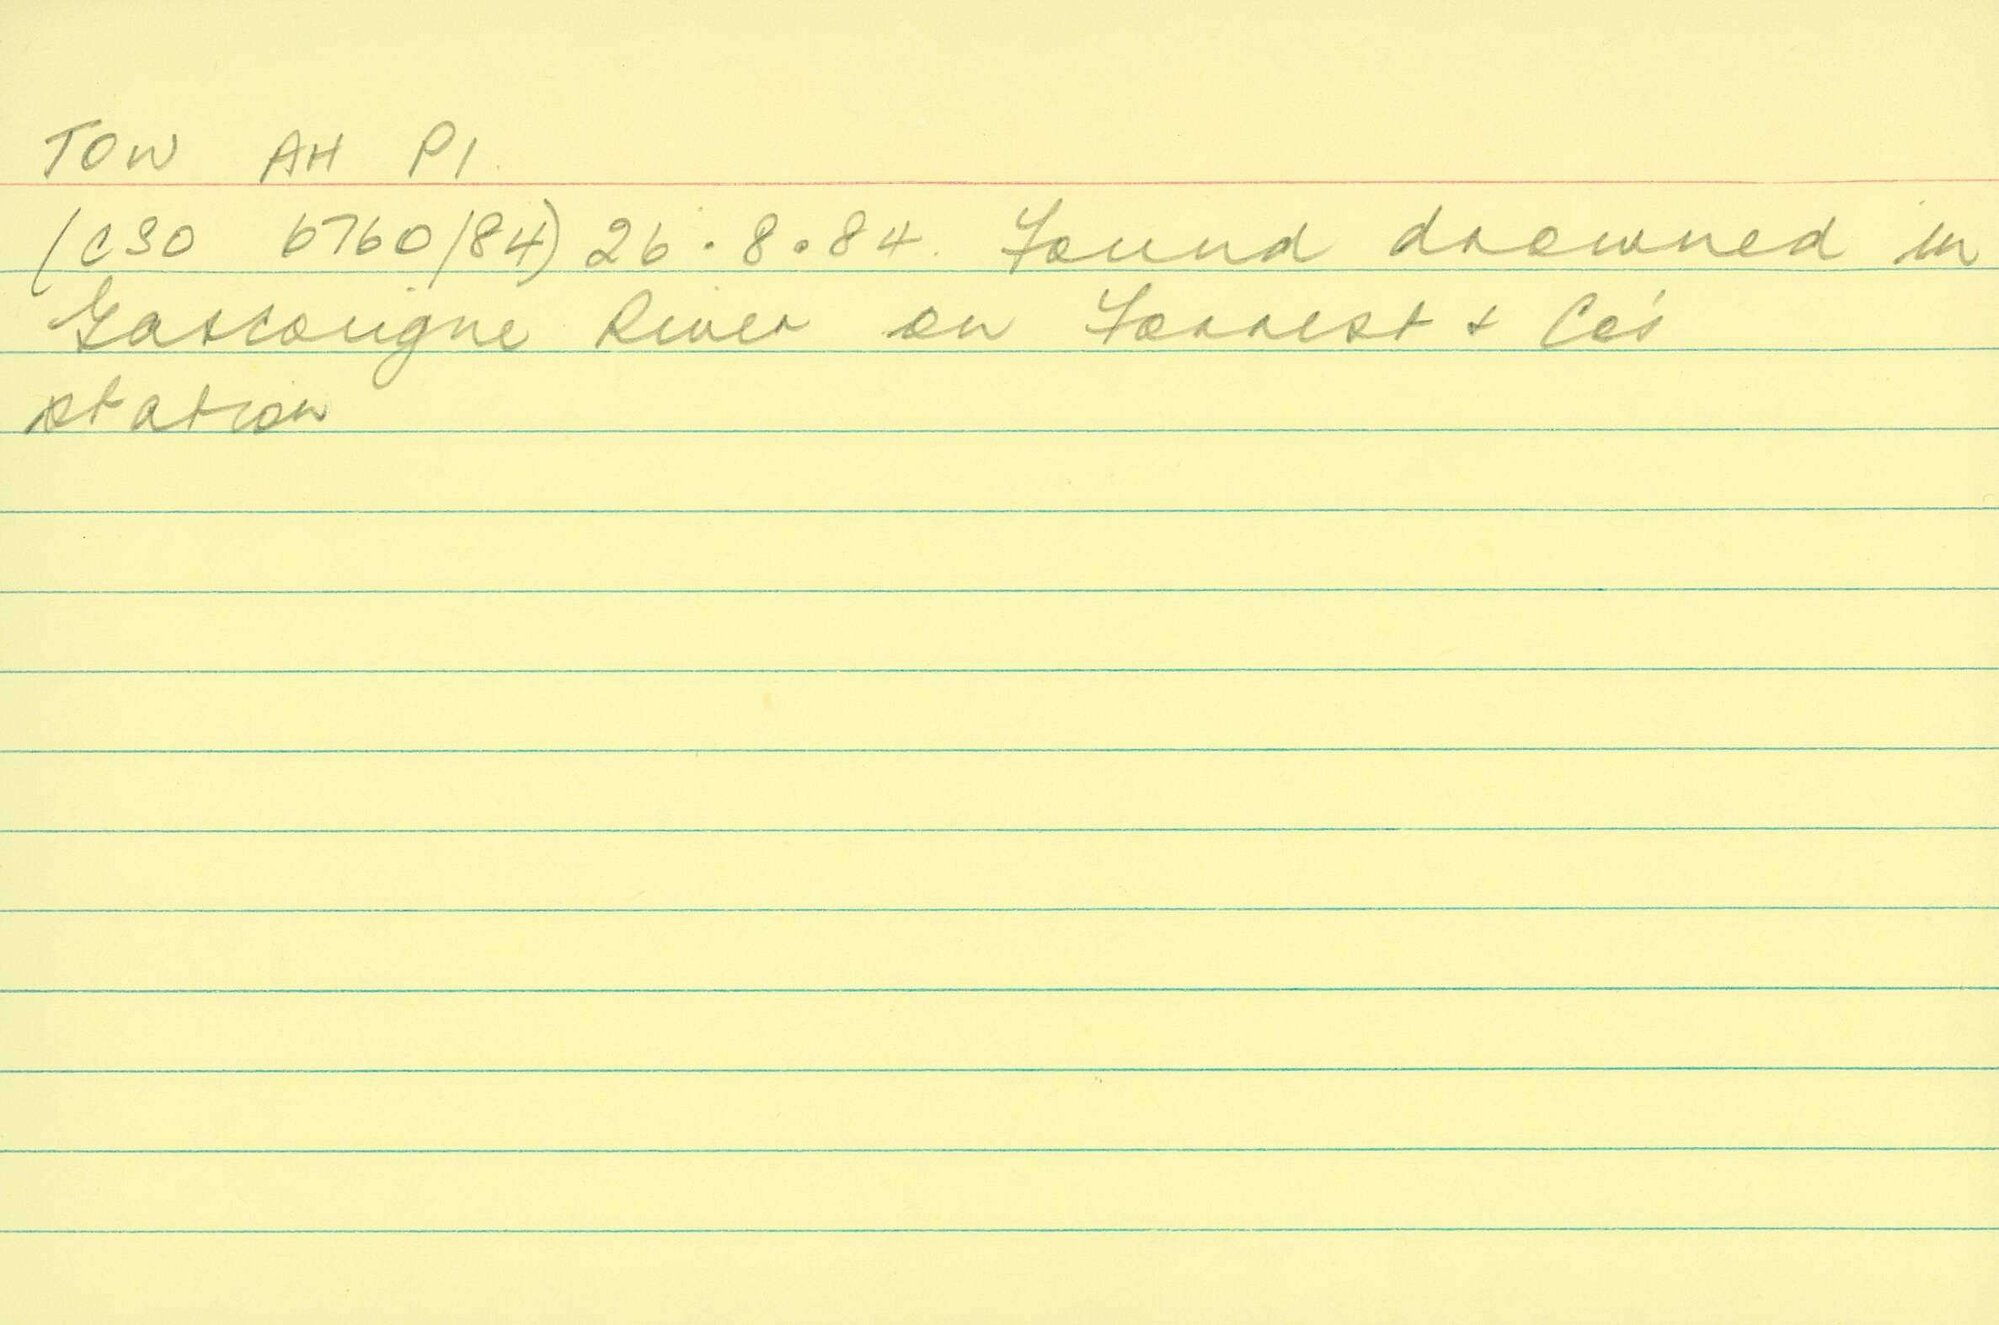 TOW AH PI.
(CSO 6760/84) 26.8.84. Found drowned in
Gascoigne River on Forrest + Co's
station